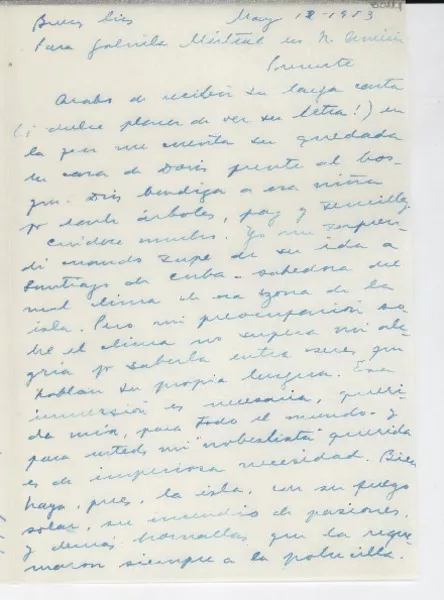 Buenos Aires May 12 - 1953
Para Gabriela Mistral en N. América
Presente
Acabo de recibir su larga carta
(¡ dulce placer de ver su letra!) en
la que me cuenta su quedada
en casa de Doris frente al bos-
que. Dios bendiga a esa niña
por darle árboles, paz y sencillez
cuidose mucho. Yo me sorpren-
dí cuando supe de su ida a
Santiago de Cuba - sabedora del
mal clima de esa zona de la
isla. Pero mi preocupación so-
bre el clima no supera mi ale-
gría por saberla entre seres que
hablan su propia lengua. Esa
inmersión es necesaria, queri-
da mía, para todo el mundo. y
para usted mi "nobelista" querida
es de imperiosa necesidad. Bien
haya, pues, la isla, con su fuego
solar, su incendio de pasiones,
y demás hornallas que la reque-
maron siempre a la pobrecilla.